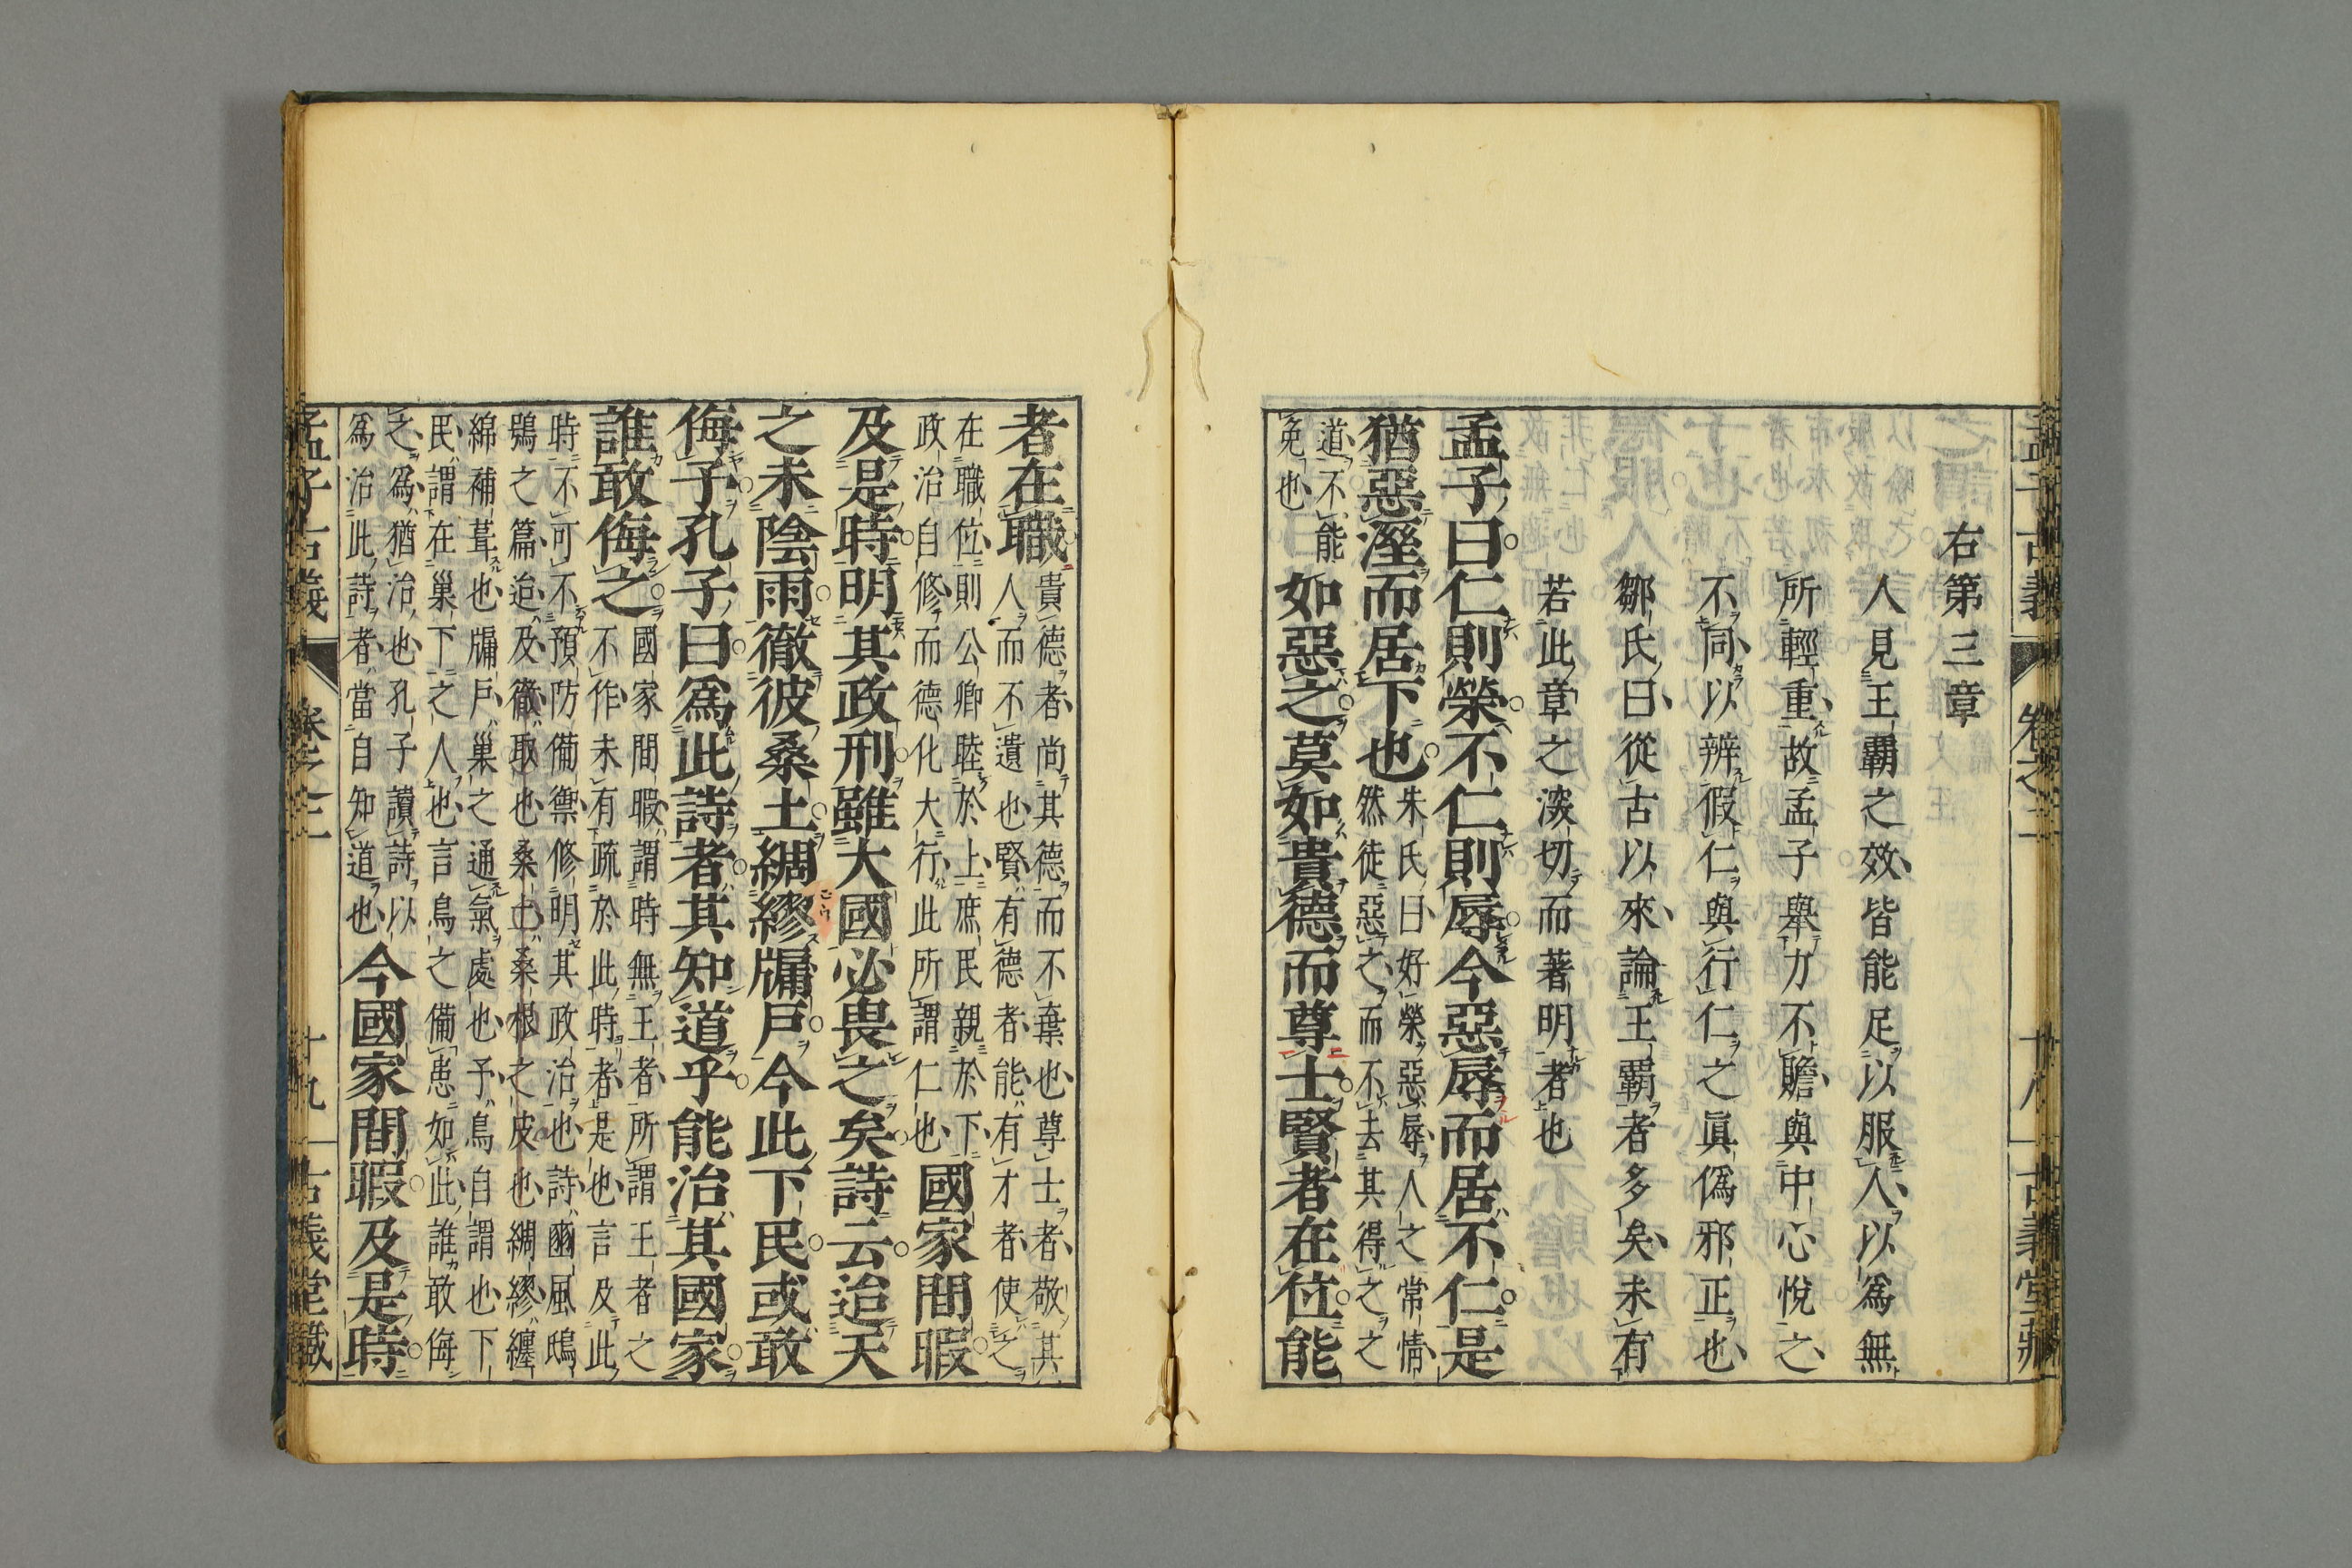 右第三章
人見王覇之效皆能足以服人以爲無
所輕重故孟子舉力不贍與中心悅之
不同以辨假仁與行仁之眞僞邪正也
鄒氏曰從古以來論王覇者多矣未有
若此章之深切而著明者也
孟子曰仁則榮不仁則辱今惡辱而居不仁是
猶惡溼而居下也
朱氏曰好榮惡辱人之常情
然徒惡之而不去其得之之
道不能
免也
如惡之莫如貴德而尊士賢者在位能
者在職
貴德者尚其德而不棄也尊士者敬其
人而不遺也賢有德者能有才者使之
在職位則公卿睦於上庶民親於下
政治自修而德化大行此所謂仁也
國家間暇
及是時明其政刑雖大國必畏之矣詩云迨天
之未陰雨徹彼桑土綢繆牖戶今此下民或敢
侮予孔子曰爲此詩者其知道乎能治其國家
誰敢侮之
國家間暇謂時無王者所謂王者之
不作未有疏於此時者是也言及此
時不可不預防備禦修明其政治也詩豳風鴟
鴞之篇迨及徹取也桑土桑根之皮也綢繆纏
綿補葺也牖戶巢之通氣處也予鳥自謂也下
民謂在巢下之人也言鳥之備患如此誰敢侮
之爲猶治也孔子讀詩以
爲治此詩者當自知道也
今國家間暇及是時
孟子古義
卷之二
十九
古義堂藏